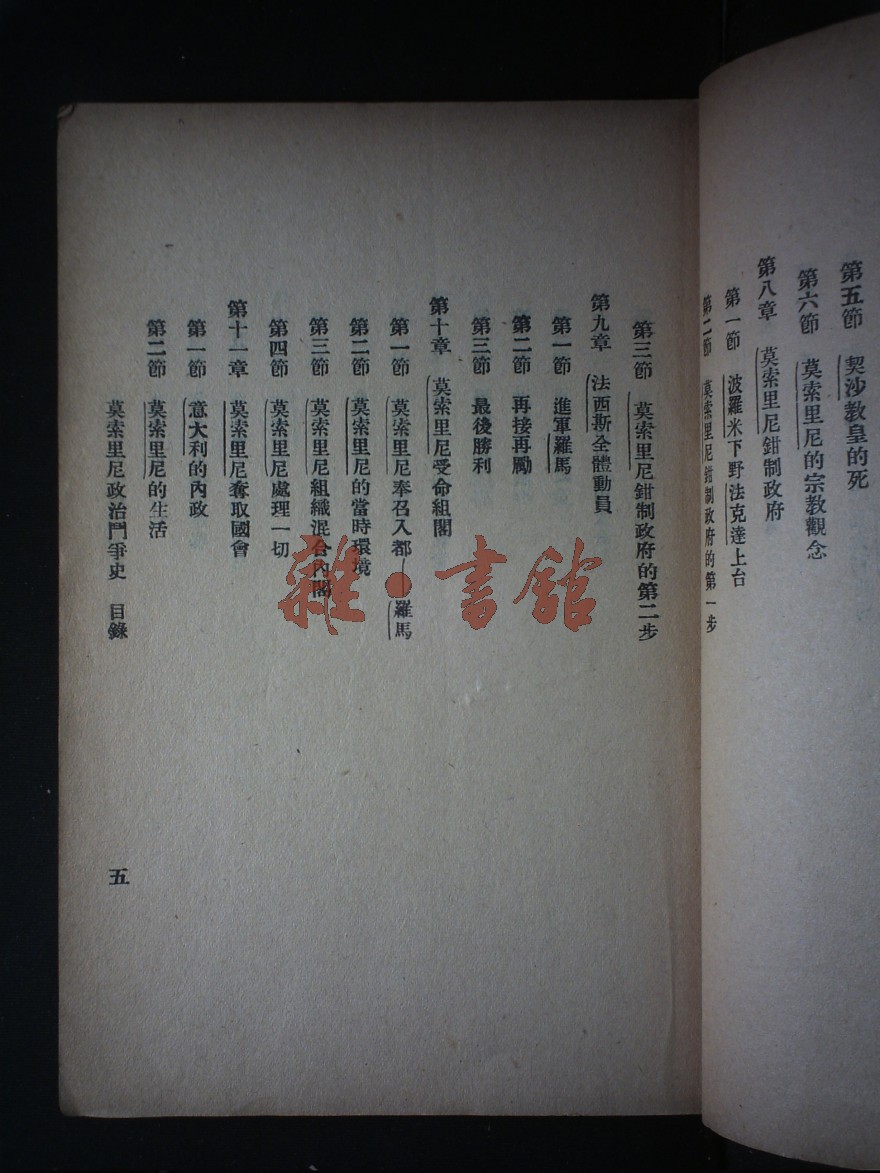 第五節 契沙教皇的死
第六節 莫索里尼的宗教觀念
第八章 莫索里尼鉗制政府
第一節 波羅米下野法克達上台
第二節 莫索里尼鉗制政府的第一步
第三節 莫索里尼鉗制政府的第二步
第九章 法西斯全體動員
第一節 進軍羅馬
第二節 再接再勵
第三節 最後勝利
第十章 莫索里尼受命組閣
第一節 莫索里尼奉召入都—羅馬
第二節 莫索里尼的當時環境
第三節 莫索里尼組織混合內閣
第四節 莫索里尼處理一切
第十一章 莫索里尼奪取國會
第一節 意大利的內政
第二節 莫索里尼的生活
莫索里尼政治鬥爭史 目錄
五
雜·書館